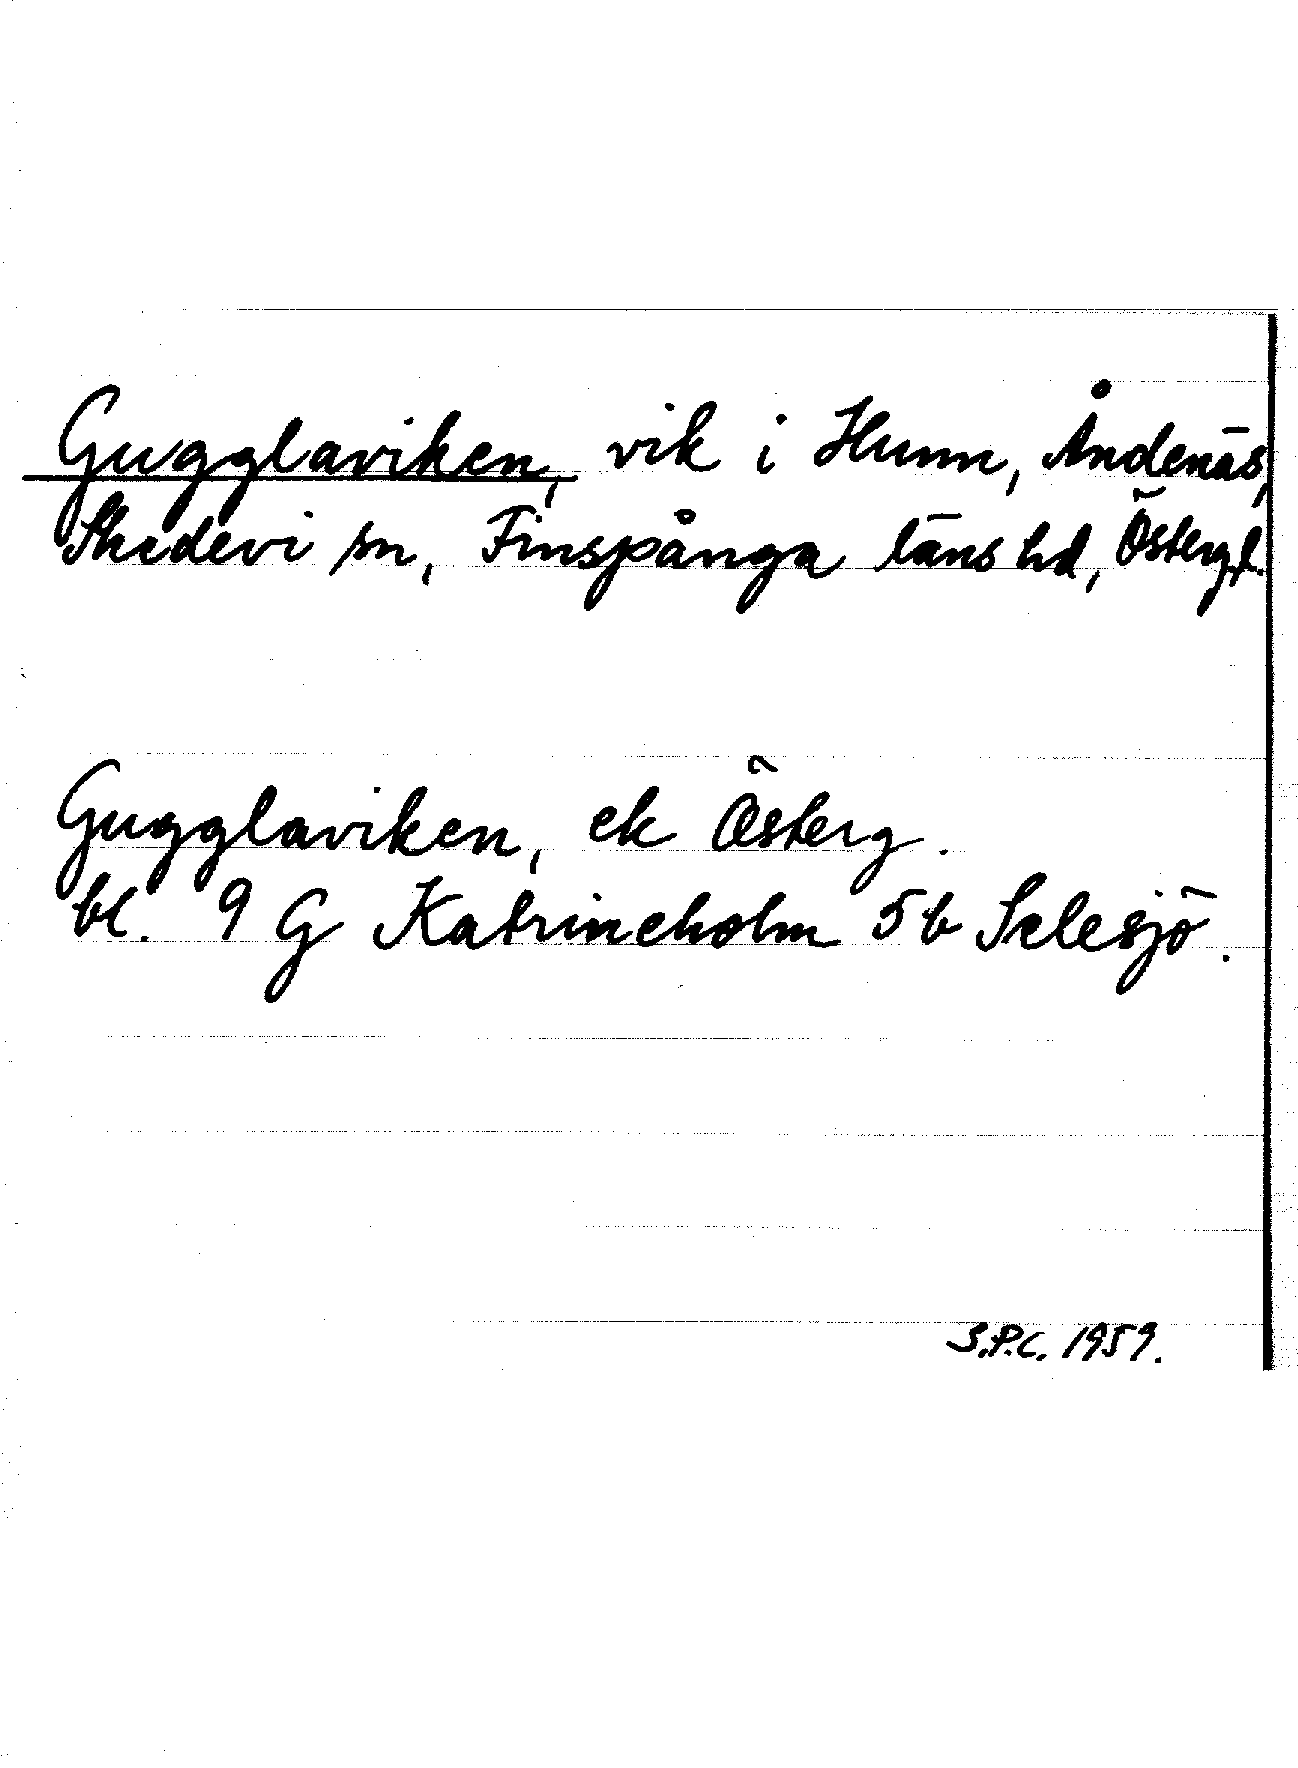 Gugglaviken, vik i Hunn, Åndenäs,
Skedevi sn, Finspånga läns hd, Östergl.
Gugglaviken, ek Österg.
bl. 9 G Katrineholm 5b Selesjö.
S.P.C. 1959.